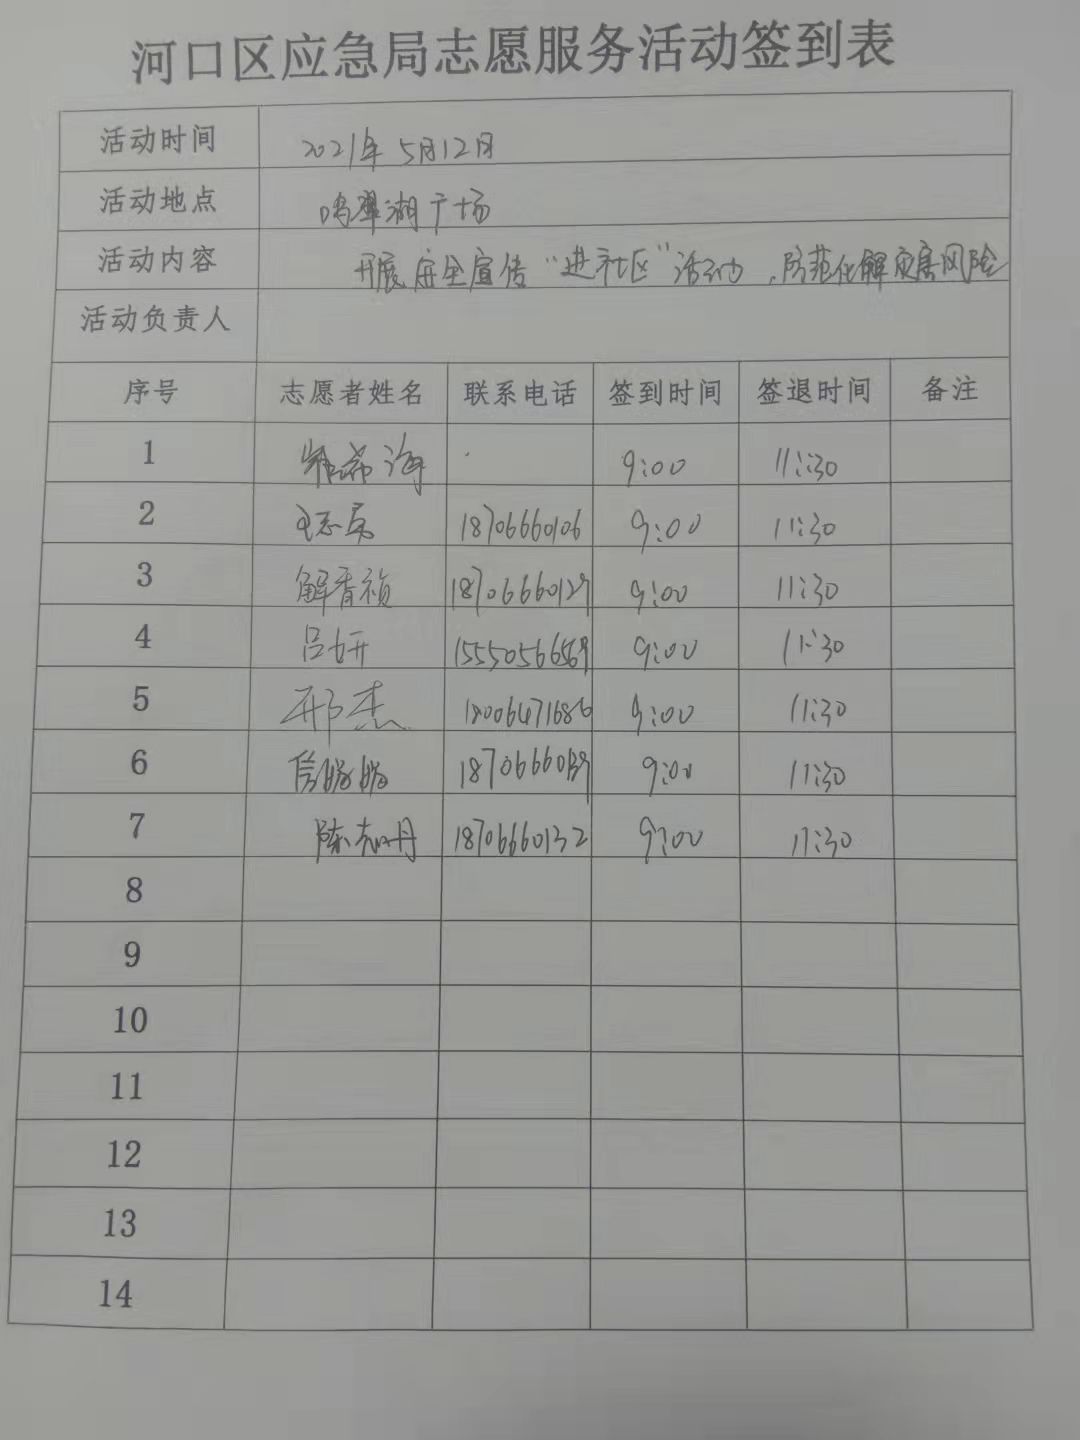 河口区应急局志愿服务活动签到表
活动时间 2021年5月12日
活动地点 鸣翠湖广场
活动内容 开展安全宣传“进社区”活动，防范化解灾害风险
活动负责人
序号 志愿者姓名 联系电话 签到时间 签退时间 备注
1 海 9:00 11:30
2 王志 18706660106 9:00 11:30
3 解香祯 18706660129 9:00 11:30
4 吕妍 15550566569 9:00 11:30
5 邢杰 18006471686 9:00 11:30
6 信 9:00 11:30
7 陈志丹 18706660132 9:00 11:30
8
9
10
11
12
13
14